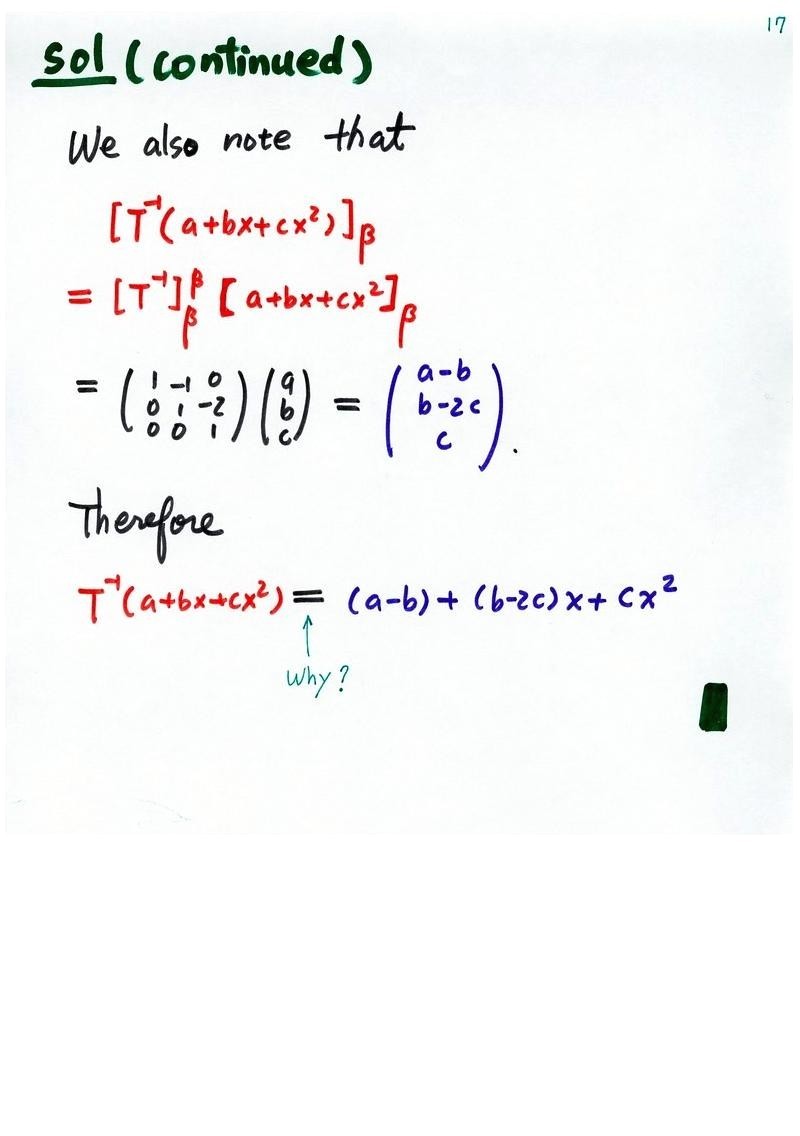 17
Sol (continued)
We also note that
[T⁻¹(a+bx+cx²)]_β
= [T⁻¹]_β^β [a+bx+cx²]_β
= (1 -1 0; 0 1 -2; 0 0 1)(a; b; c) = (a-b; b-2c; c).
Therefore
T⁻¹(a+bx+cx²) = (a-b) + (b-2c)x + cx²
↑
Why?